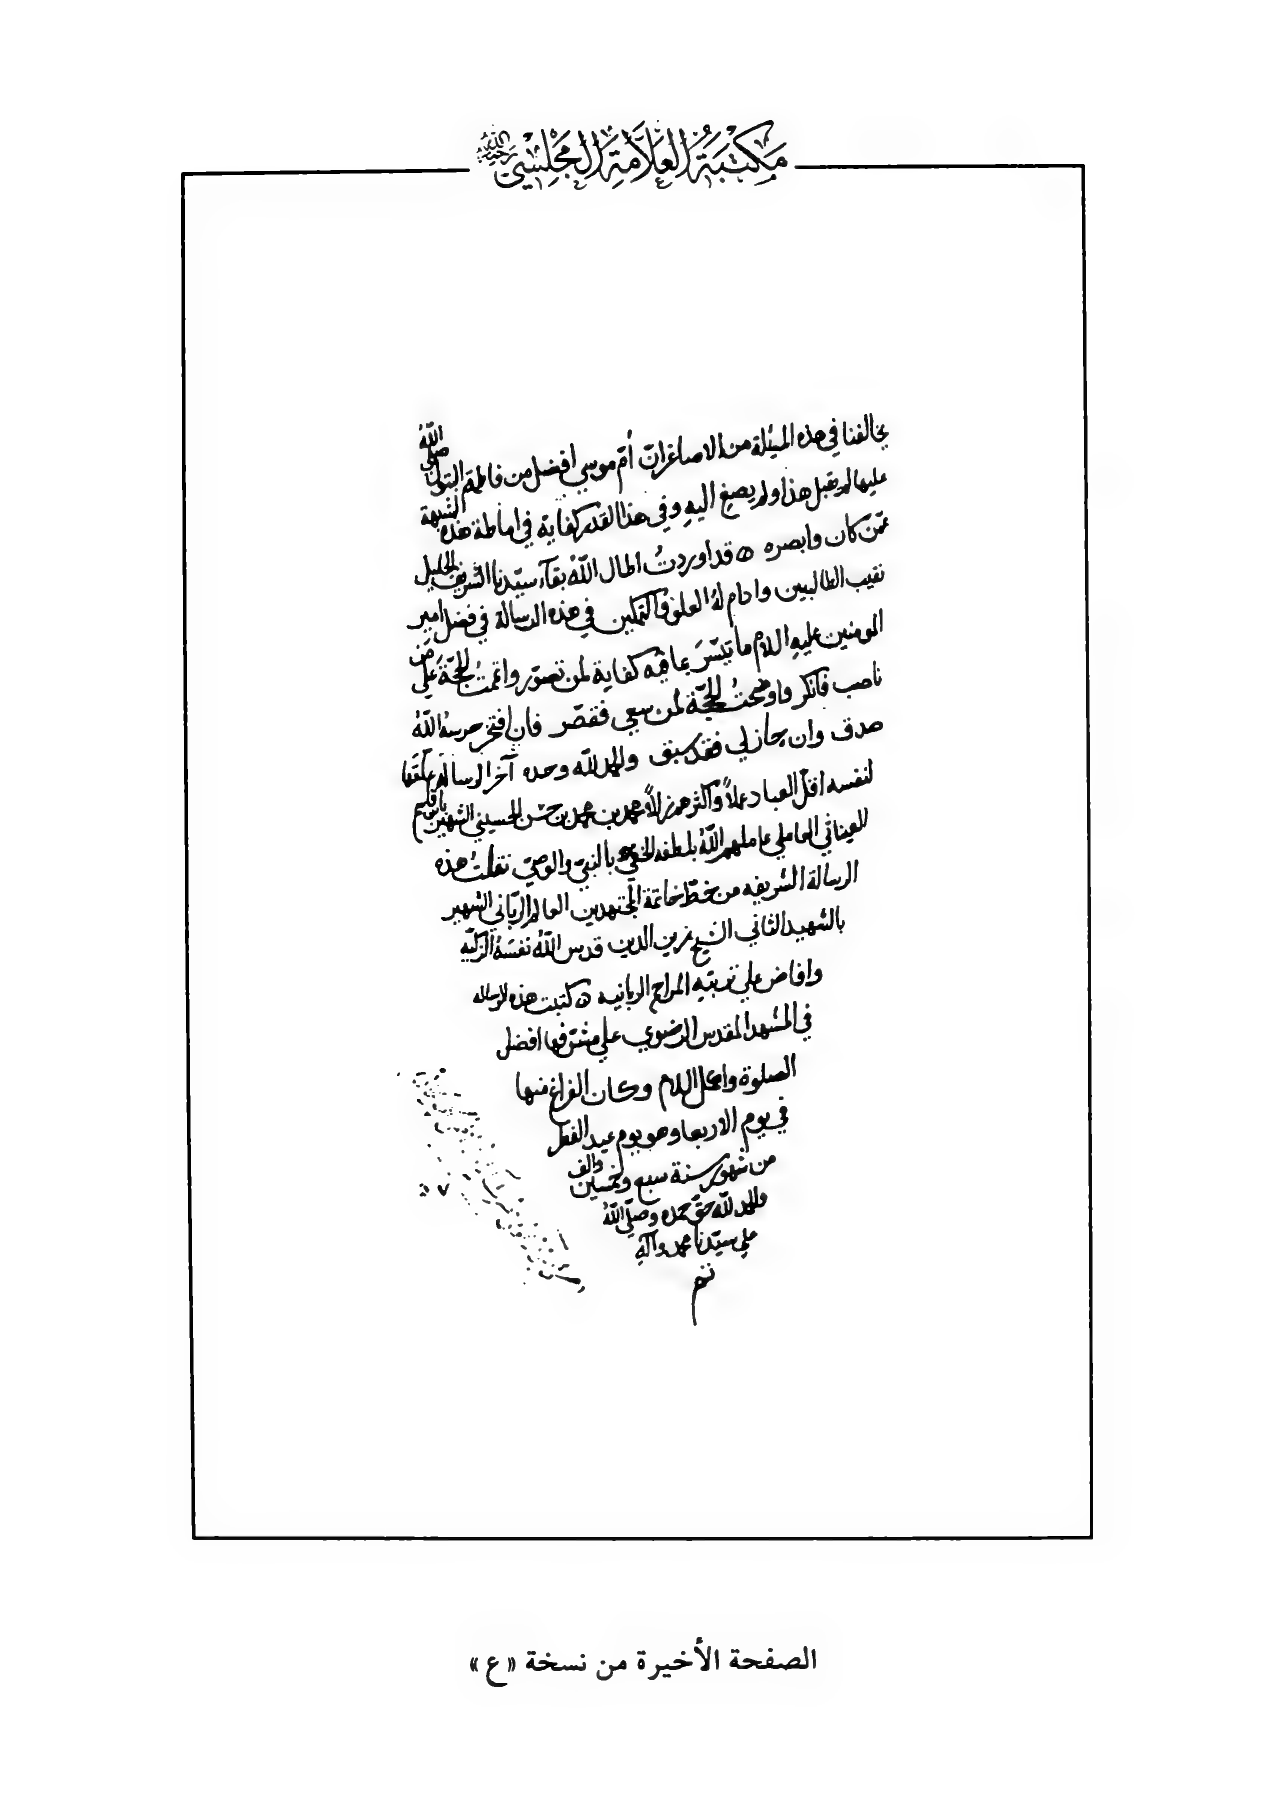 مكتبة العلامة المجلسي رحمه الله
يخالفنا في هذه المسئلة من الاصاغر انّ أمّ موسى افضل من فاطمة البتول صلى اللهُ
عليها لم يقبل هذا ولم يصغ اليهِ وفي هذا القدر كفاية في اماطة هذه الشبهة
عمّن كان وابصره قد اوردتُ اطال اللهُ بقآء سيّدنا الشريف الجليل
نقيب الطالبيين وادام لهُ العلوّ والتمكين في هذه الرسالة في فضل امير
المومنين عليهِ السلام ما تيسّرَ بما فيه كفاية لمن تصوّر واتممتُ الحجّةَ على من
ناصب فانكر واوضحتُ المحجّة لمن سعى فقصّر فان افتخر حرسهُ اللهُ
صدق وان جازلي فقد سبق والحمد للّه وحده آخر الرسالة علّقها
لنفسه اقلّ العباد عملاً واكثرهم زللاً محمد بن محمد بن حسن الحسيني الشهير بابن قاسم
العيناثي العاملي عاملهم اللهُ بلطفه الخفيّ بالنبيّ والوصيّ نقلتُ هذه
الرسالة الشريفه من خطّ خاتمة المجتهدين العالم الربّاني الشهير
بالشهيد الثاني الشيخ زين الدين قدس اللهُ نفسَهُ الزكيّه
وافاض على تربتهِ المراحم الربانيه كتبت هذه الرساله
في المشهد المقدس الرضوي على مشرّفها افضل
الصلوة واكمل السلام وكان الفراغ منها
في يوم الاربعا وهو يوم عيد الفطر
من شهور سنة سبع وخمسين والف
والحمد للّه حقّ حمده وصلّى اللهُ
على سيّدنا محمد وآلهِ
تم
الصفحة الأخيرة من نسخة «ع»